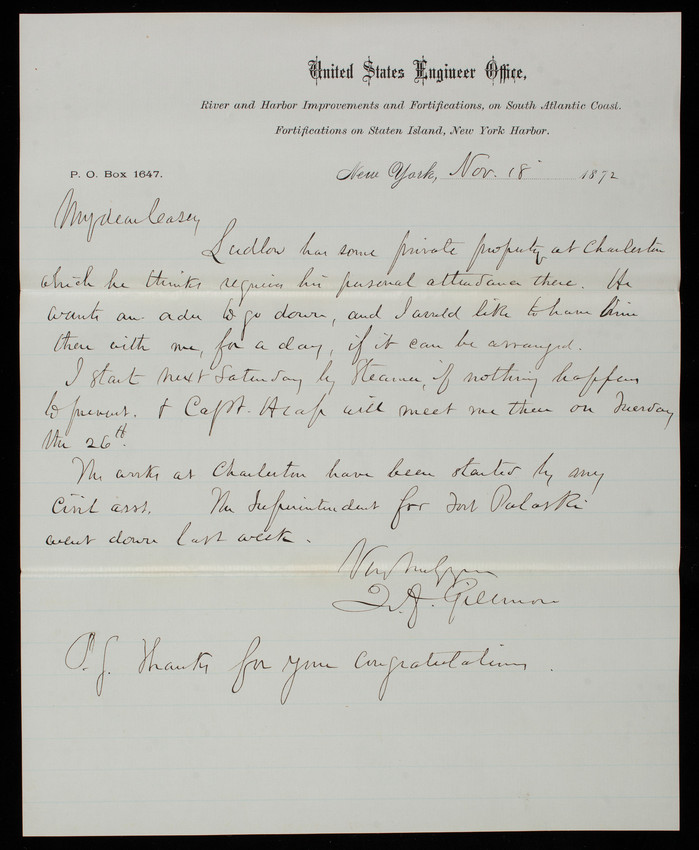 United States Engineer Office,
River and Harbor Improvements and Fortifications, on South Atlantic Coast.
Fortifications on Staten Island, New York Harbor.
P. O. Box 1647.
New York, Nov. 18 1872
My dear Casey
Ludlow has some private property at Charleston
which he thinks requires his personal attendance there. He
wants an order to go down, and I would like to have him
there with me, for a day, if it can be arranged.
I start next Saturday by Steamer, if nothing happens
to prevent. & Capt. Heap will meet me there on Tuesday
the 26th.
The works at Charleston have been started by my
Civil asst. The Superintendent for Fort Pulaski
went down last week.
Very truly yours
Q. A. Gillmore
P.S. Thanks for your congratulations.